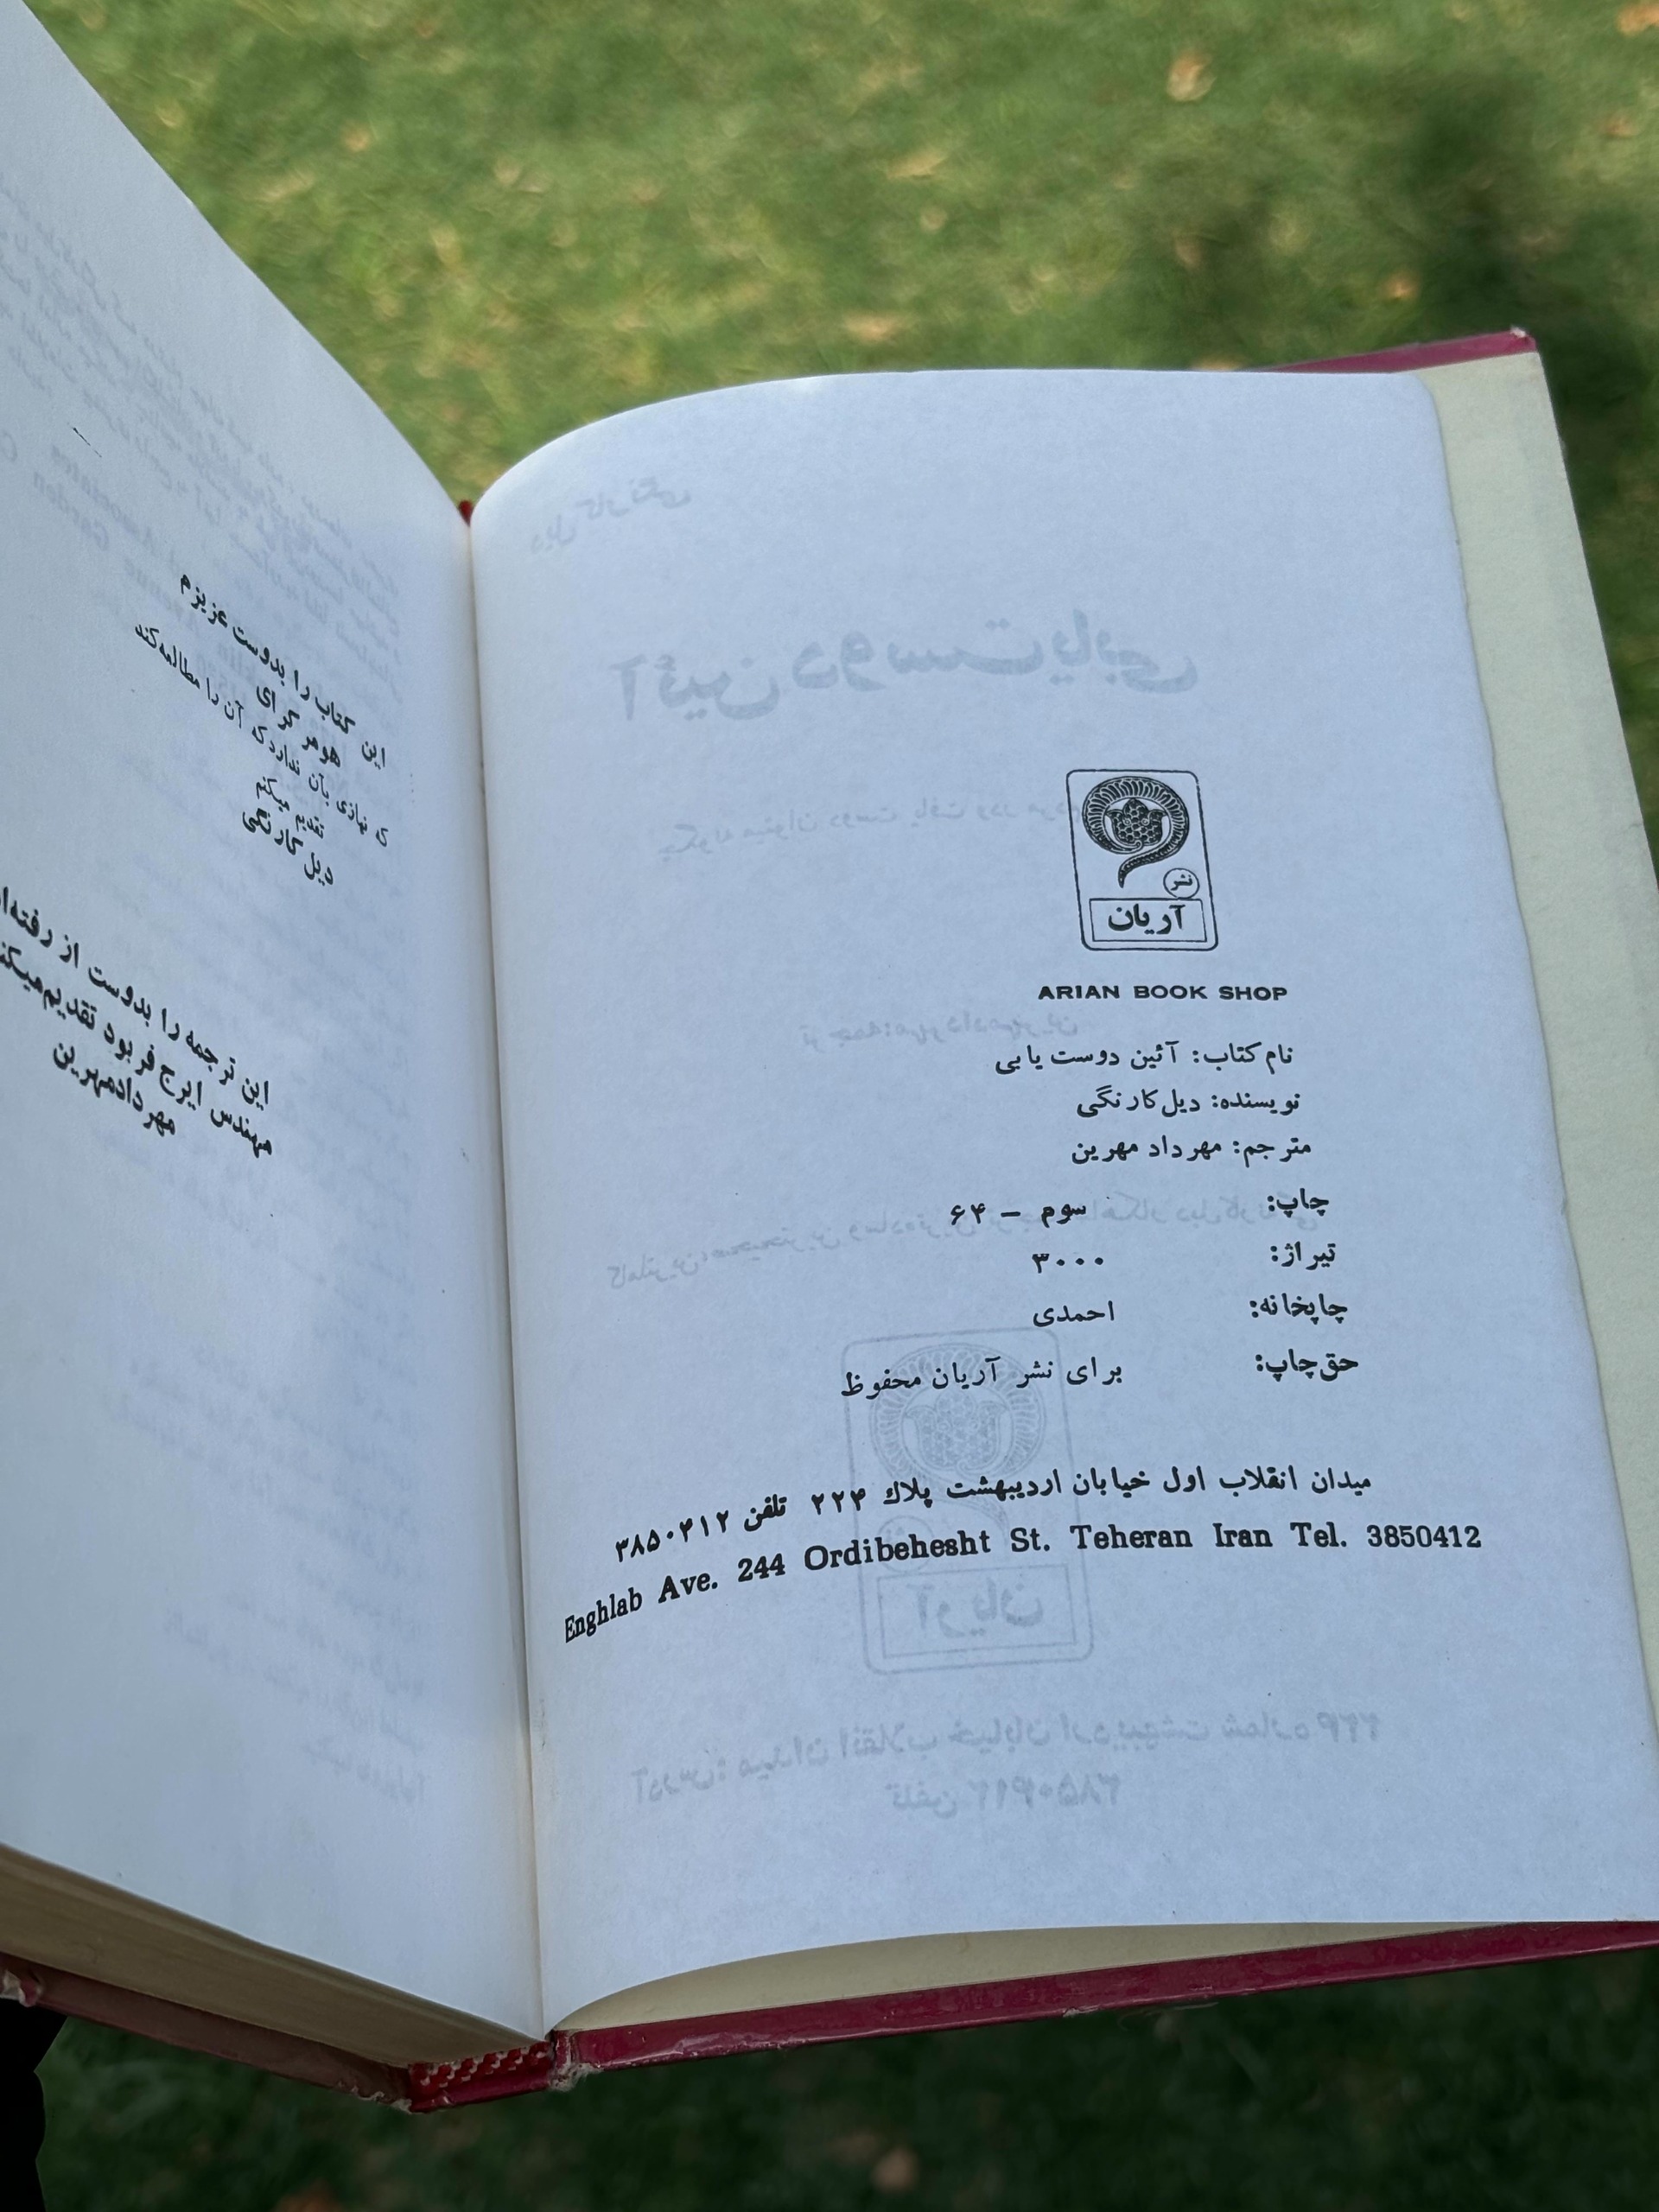 نشر
آریان
ARIAN BOOK SHOP
نام کتاب: آئین دوست یابی
نویسنده: دیل کارنگی
مترجم: مهرداد مهرین
چاپ: سوم – ۶۴
تیراژ: ۳۰۰۰
چاپخانه: احمدی
حق چاپ: برای نشر آریان محفوظ
میدان انقلاب اول خیابان اردیبهشت پلاك ۲۲۴ تلفن ۳۸۵۰۴۱۲
Enghlab Ave. 244 Ordibehesht St. Teheran Iran Tel. 3850412
این کتاب را بدوست عزیزم
هومر کرای
نیازی بآن ندارد که آن را مطالعه کند
تقدیم میکنم
دیل کارنگی
این ترجمه را بدوست از رفته
مهندس ایرج فربود تقدیم میکن
مهردادمهرین